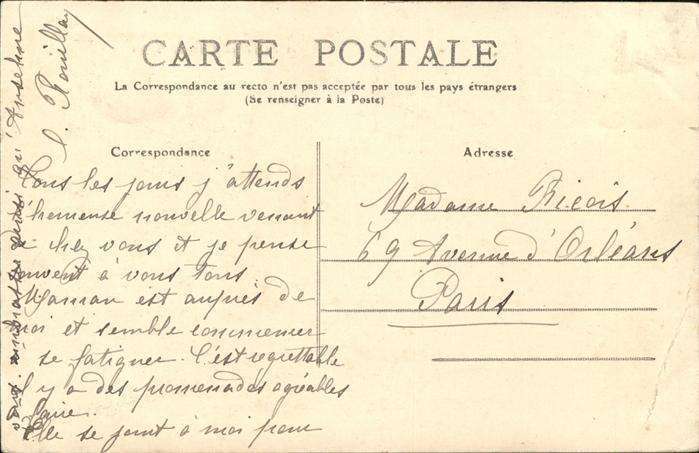 CARTE POSTALE
La Correspondance au recto n'est pas acceptée par tous les pays étrangers
(Se renseigner à la Poste)
Correspondance
Tous les jours j'attends
l'heureuse nouvelle venant
de chez vous et je pense
souvent à vous tous
Maman est auprès de
moi et semble commencer
à se fatiguer. C'est regrettable
il y a des promenades agréables
à faire.
Elle se joint à moi pour
vous embrasser ainsi qu'Anselme
L. Rouillay
Adresse
Madame Ricois
69 Avenue d'Orléans
Paris